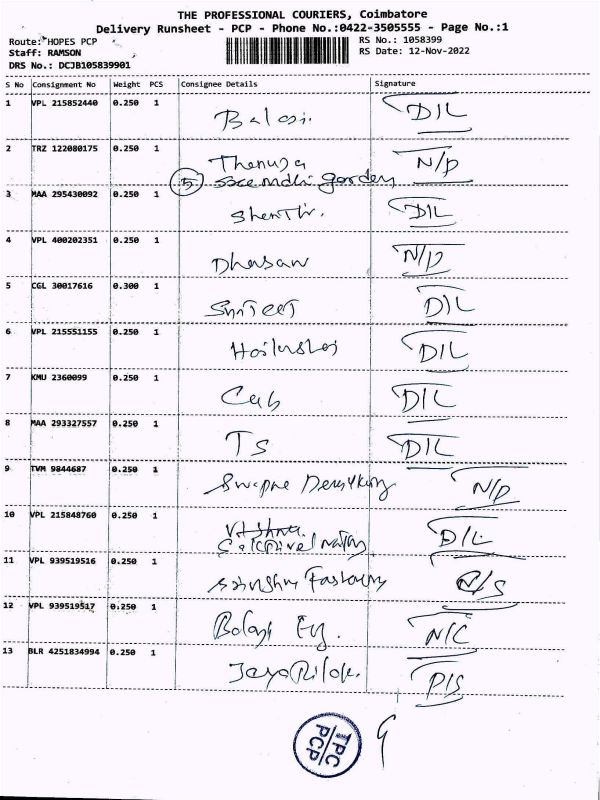 THE PROFESSIONAL COURIERS, Coimbatore
Delivery Runsheet - PCP - Phone No.:0422-3505555 - Page No.:1
Route: HOPES PCP
RS No.: 1058399
Staff: RAMSON
RS Date: 12-Nov-2022
DRS No.: DCJB105839901
S No Consignment No Weight PCS Consignee Details Signature
1 VPL 215852440 0.250 1 D/L
2 TRZ 122080175 0.250 1 Thenuja N/P
5 garden
3 MAA 295430092 0.250 1 D/L
4 VPL 400202351 0.250 1 Dhasan N/P
5 CGL 30017616 0.300 1 D/L
6 VPL 215551155 0.250 1 D/L
7 KMU 2360099 0.250 1 D/L
8 MAA 293327557 0.250 1 TS D/L
9 TVM 9844687 0.250 1 N/P
10 VPL 215848760 0.250 1 D/L
11 VPL 939519516 0.250 1 N/S
12 VPL 939519517 0.250 1 N/C
13 BLR 4251834994 0.250 1 P/S
TPC
PCP